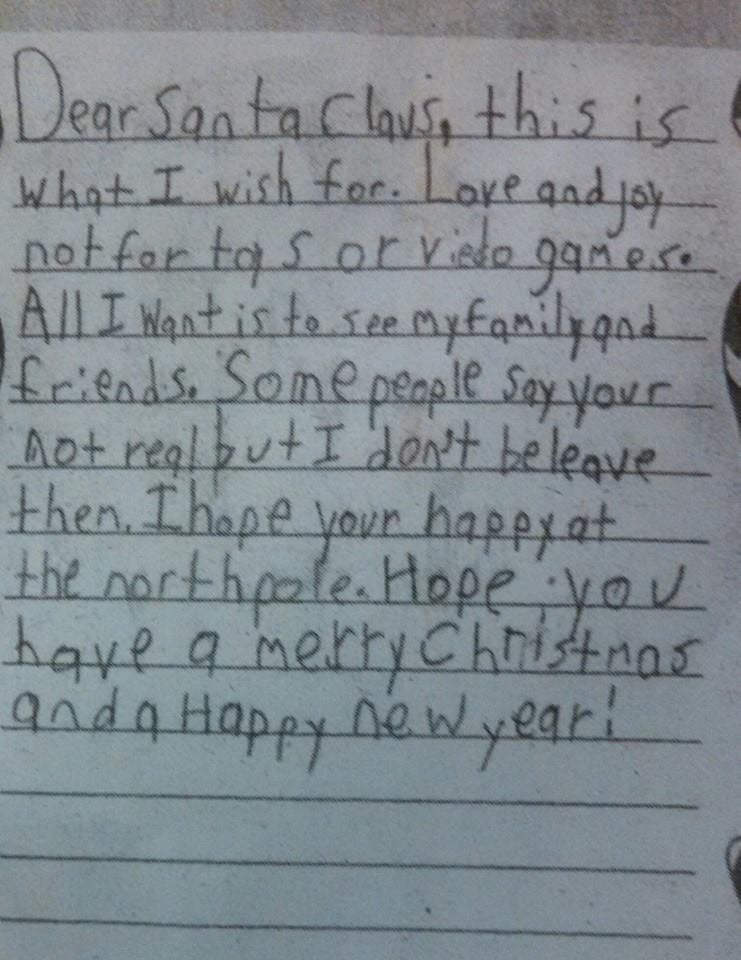 Dear Santa Claus, this is
what I wish for. Love and joy
not for toys or viedo games.
All I want is to see my family and
friends. Some people say your
not real but I don't beleave
then. I hope your happy at
the north pole. Hope you
have a merry Christmas
and a Happy new year!